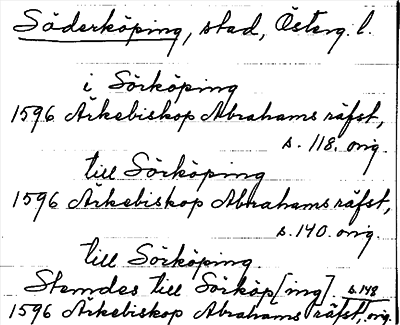 Söderköping, stad, Österg. l.
i Sörköping
1596 Ärkebiskop Abrahams räfst,
s. 118. orig.
till Sörköping
1596 Ärkebiskop Abrahams räfst,
s. 140. orig.
till Sörköping.
Stemdes till Sörköp[ing] s. 148
1596 Ärkebiskop Abrahams räfst, orig.